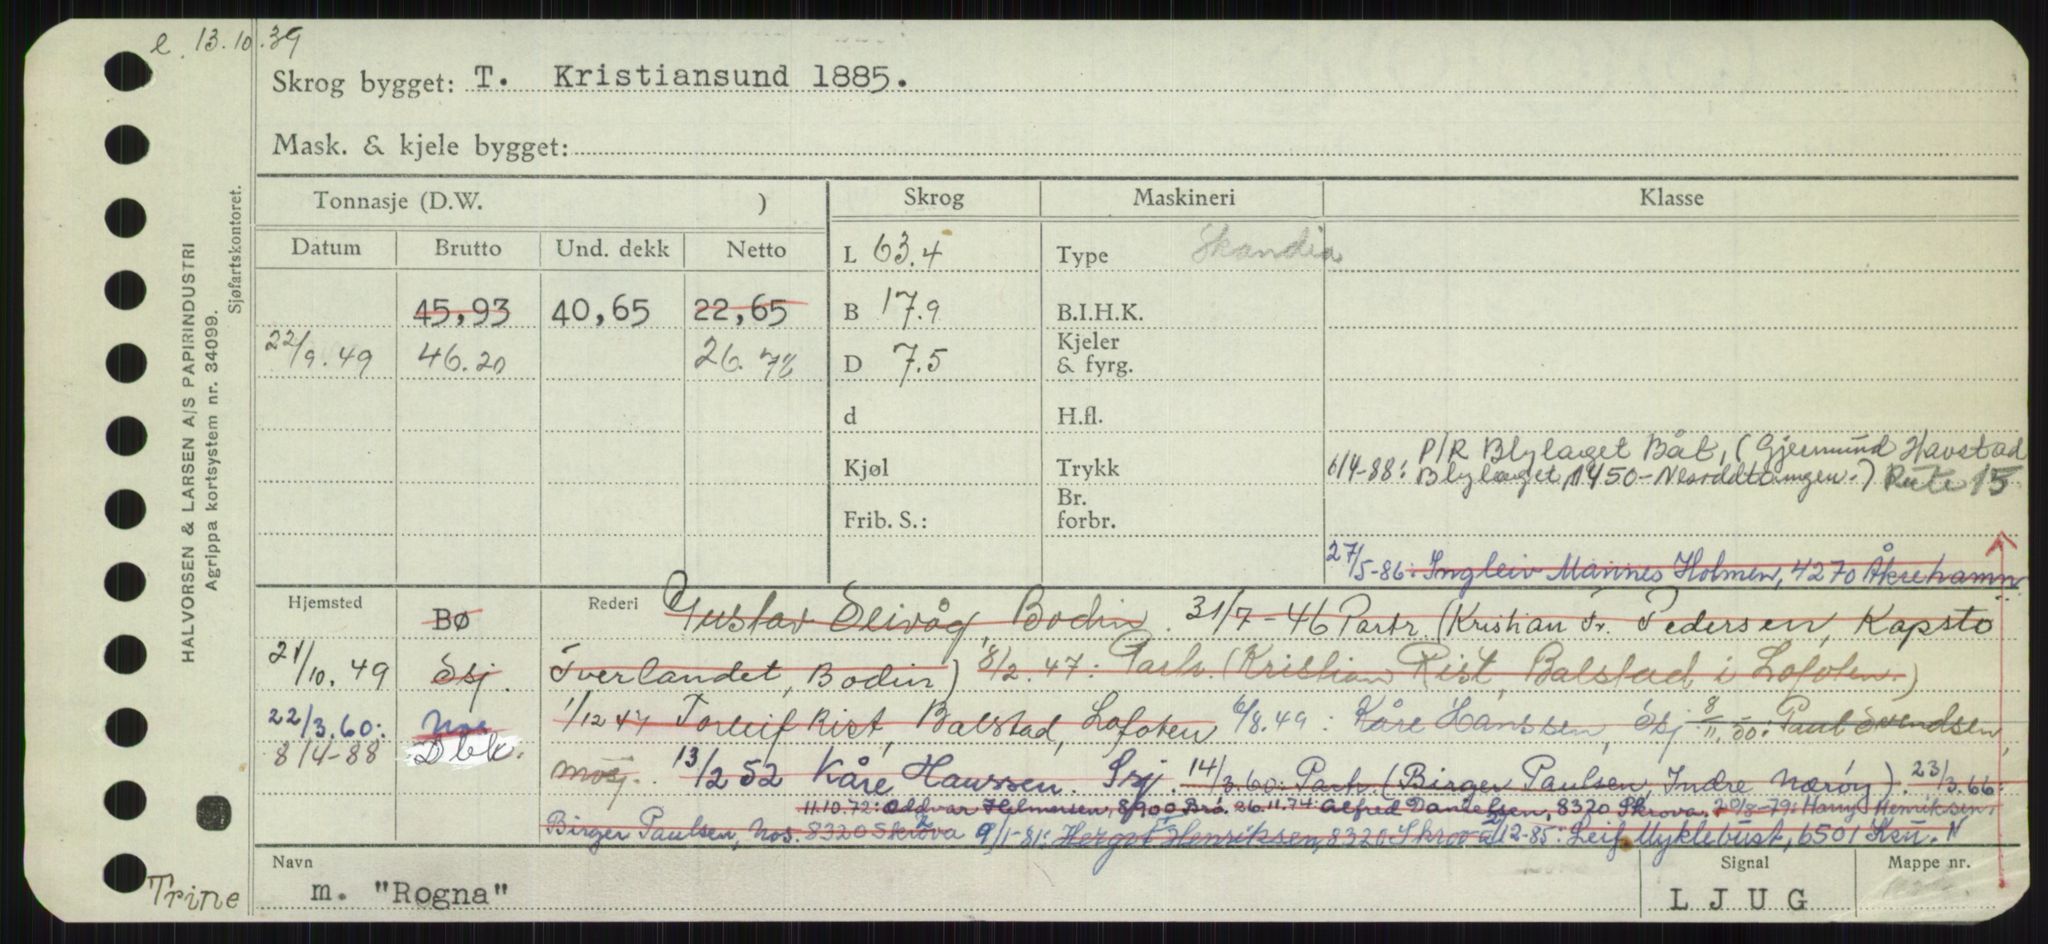 e. 13.10.39
Skrog bygget: T. Kristiansund 1885.
Mask. & kjele bygget:
HALVORSEN & LARSEN A/S PAPIRINDUSTRI
Agrippa kortsystem nr. 34099.
Sjøfartskontoret.
Tonnasje (D.W. ) Skrog Maskineri Klasse
Datum Brutto Und. dekk Netto L 63.4 Type Skandia
45,93 40,65 22,65 B 17.9 B.I.H.K.
22/9.49 46.20 26.78 D 7.5 Kjeler & fyrg.
d H.fl.
Kjøl Trykk
Frib. S.: Br. forbr.
6/4-88: P/R Blylaget Båt, (Gjermund Havstad
Blylaget, 1450-Nesoddtangen.) Rute 15
27/5-86: Ingleiv Mannes Holmen, 4270 Åkrehamn
Hjemsted Bø Rederi Gustav Seivåg, Bodin. 31/7-46 Partr. (Kristian Fr. Pedersen, Kapstø
21/10.49 Ssj. Tverlandet, Bodin) 8/2.47. Partr. (Kristian Rist, Balstad i Lofoten.)
22/3.60: Nos 1/12 47 Torleif Rist, Balstad, Lofoten 6/8.49: Kåre Hanssen, Ssj 8/11.50: Paul Svendsen,
8/4-88 Dbk. Mosj. 13/2 52 Kåre Hanssen. Ssj. 14/3.60: Partr. (Birger Paulsen, Indre Nærøy). 23/3.66:
11.10.72: Oddvar Helmersen, 8900, Brö. 26.11.74: Alfred Danielsen, 8320 Skrova. 20/8-79: Harry Henriksen
Birger Paulsen, Nos. 8320 Skrova 9/1-81: Hergot Henriksen, 8320 Skrova 2/12-85: Leif Myklebust, 6501 Ksu. N
Navn Signal Mappe nr.
Trine m. "Rogna" LJUG